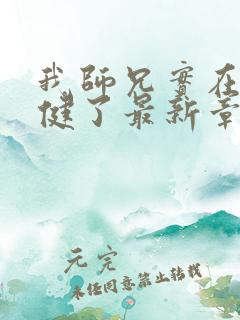 我师兄实在
健了最新章
元完
未经同意禁止转载